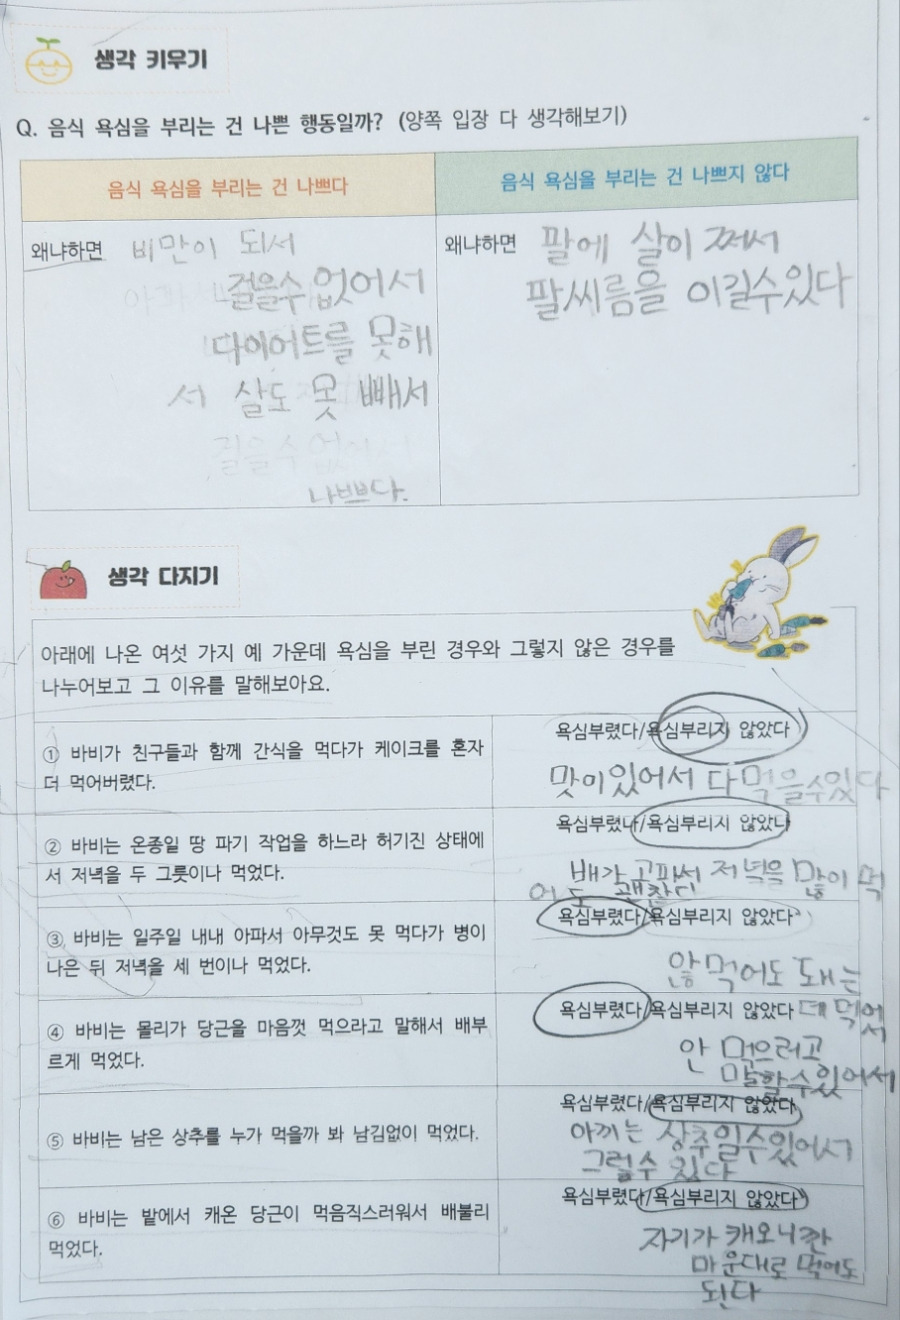 생각 키우기
Q. 음식 욕심을 부리는 건 나쁜 행동일까? (양쪽 입장 다 생각해보기)
음식 욕심을 부리는 건 나쁘다
왜냐하면 비만이 되서
걸을수 없어서
다이어트를 못해
서 살도 못 빼서
걸을수없어서
나쁘다.
음식 욕심을 부리는 건 나쁘지 않다
왜냐하면 팔에 살이 쪄서
팔씨름을 이길수있다
생각 다지기
아래에 나온 여섯 가지 예 가운데 욕심을 부린 경우와 그렇지 않은 경우를
나누어보고 그 이유를 말해보아요.
① 바비가 친구들과 함께 간식을 먹다가 케이크를 혼자
더 먹어버렸다.
욕심부렸다/욕심부리지 않았다
맛이있어서 다먹을수있다
② 바비는 온종일 땅 파기 작업을 하느라 허기진 상태에
서 저녁을 두 그릇이나 먹었다.
욕심부렸다/욕심부리지 않았다
배가 고파서 저녁을 많이 먹
어도 괜찮다
③ 바비는 일주일 내내 아파서 아무것도 못 먹다가 병이
나은 뒤 저녁을 세 번이나 먹었다.
욕심부렸다/욕심부리지 않았다
않먹어도 돼는
데 먹어서
④ 바비는 몰리가 당근을 마음껏 먹으라고 말해서 배부
르게 먹었다.
욕심부렸다/욕심부리지 않았다
안 먹으러고
말할수있어서
⑤ 바비는 남은 상추를 누가 먹을까 봐 남김없이 먹었다.
욕심부렸다/욕심부리지 않았다
아끼는 상추일수있어서
그럴수 있다
⑥ 바비는 밭에서 캐온 당근이 먹음직스러워서 배불리
먹었다.
욕심부렸다/욕심부리지 않았다
자기가 캐오니깐
마운대로 먹어도
된다